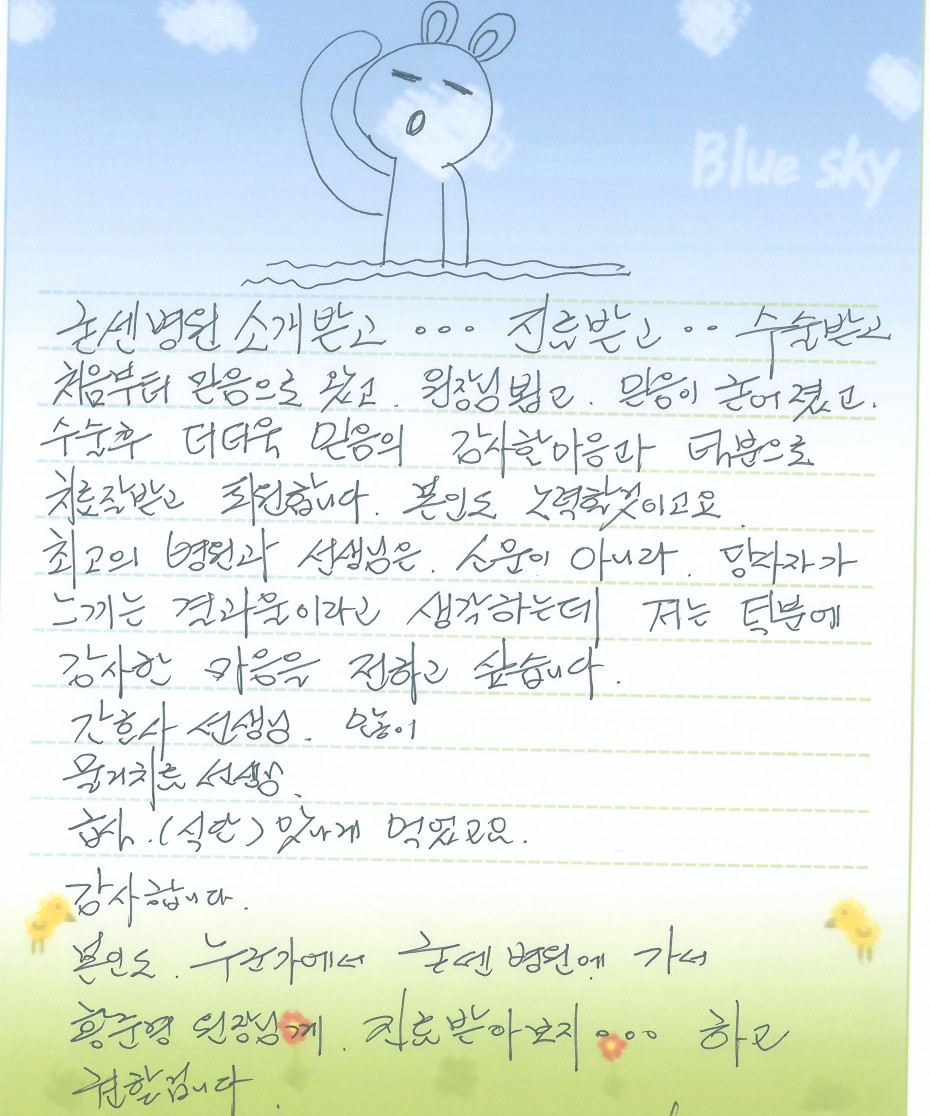 Blue sky
굳센병원 소개받고 ... 진료받고 .. 수술받고
처음부터 믿음으로 왔고. 원장님 뵙고. 믿음이 굳어졌고.
수술후 더더욱 믿음의 감사한마음과 덕분으로
치료잘받고 퇴원합니다. 본인도 노력할것이고요.
최고의 병원과 선생님은. 소문이 아니라. 당사자가
느끼는 결과물이라고 생각하는데 저는 덕분에
감사한 마음을 전하고 싶습니다.
간호사 선생님. 많이
물리치료 선생님.
(식단) 맛나게 먹었고요.
감사합니다.
본인도. 누군가에서 굳센병원에 가서
원장님께. 진료받아보지 ... 하고
권할겁니다